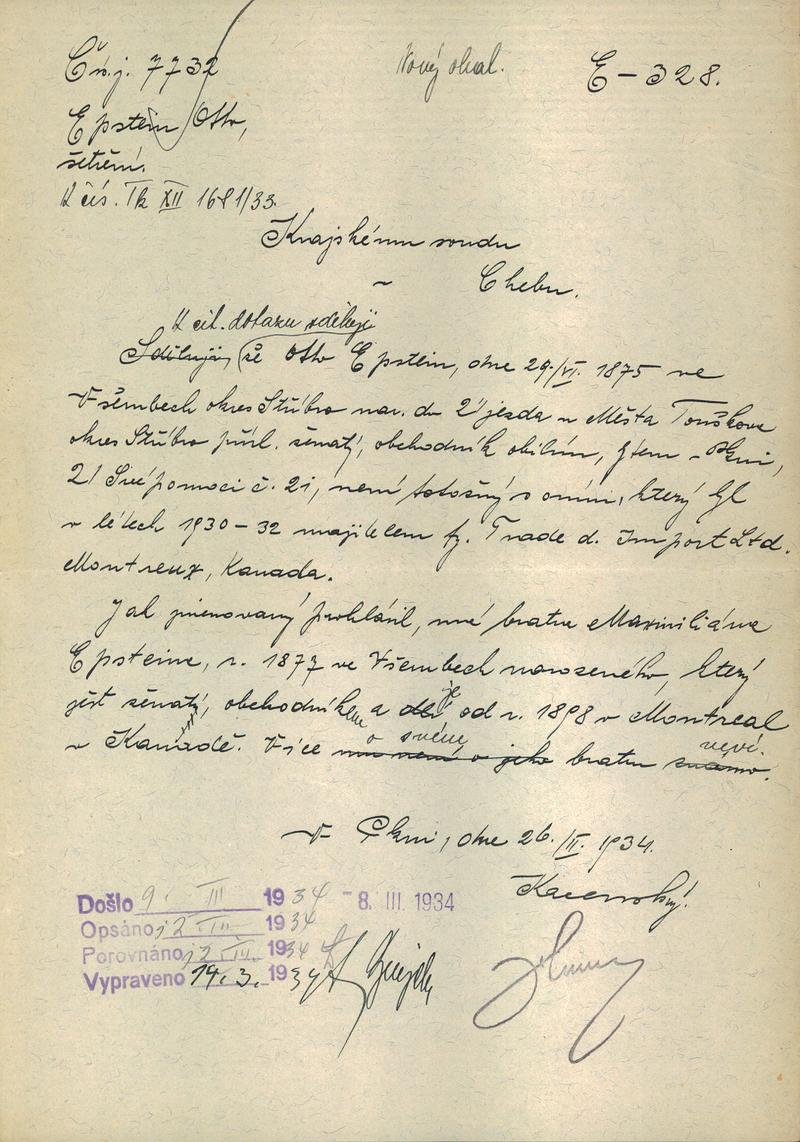 Čís.j. 7732
Nový obal.
E – 328.
Epstein Otto,
šetření.
K čís. Tk XII 1681/33.
Krajskému soudu
v Chebu.
K cit. dotazu sděluji
Sděluji, že Otto Epstein, dne 29./VI. 1875 ve
Všembech okres Stříbro nar. do újezda u Města Touškova
okres Stříbro přísl. ženatý, obchodník obilím, bytem v Plzni,
Svépomoci č. 21, není totožný s oním, který byl
v létech 1930–32 majitelem fy. Trade d. Import Ltd.
Montreux, Kanada.
Jak jmenovaný prohlásil, má bratra Maxmiliána
Epsteina, r. 1877 ve Všembech narozeného, který
jest ženatý, obchodníkem a je od r. 1898 v Montreal
v Kanadě. Více o svém bratru neví.
V Plzni, dne 26./II. 1934.
Došlo 9. III 1934
- 8. III. 1934
Opsáno 12. III. 1934
Porovnáno 12. III. 1934
Vypraveno 14. 3. 1934